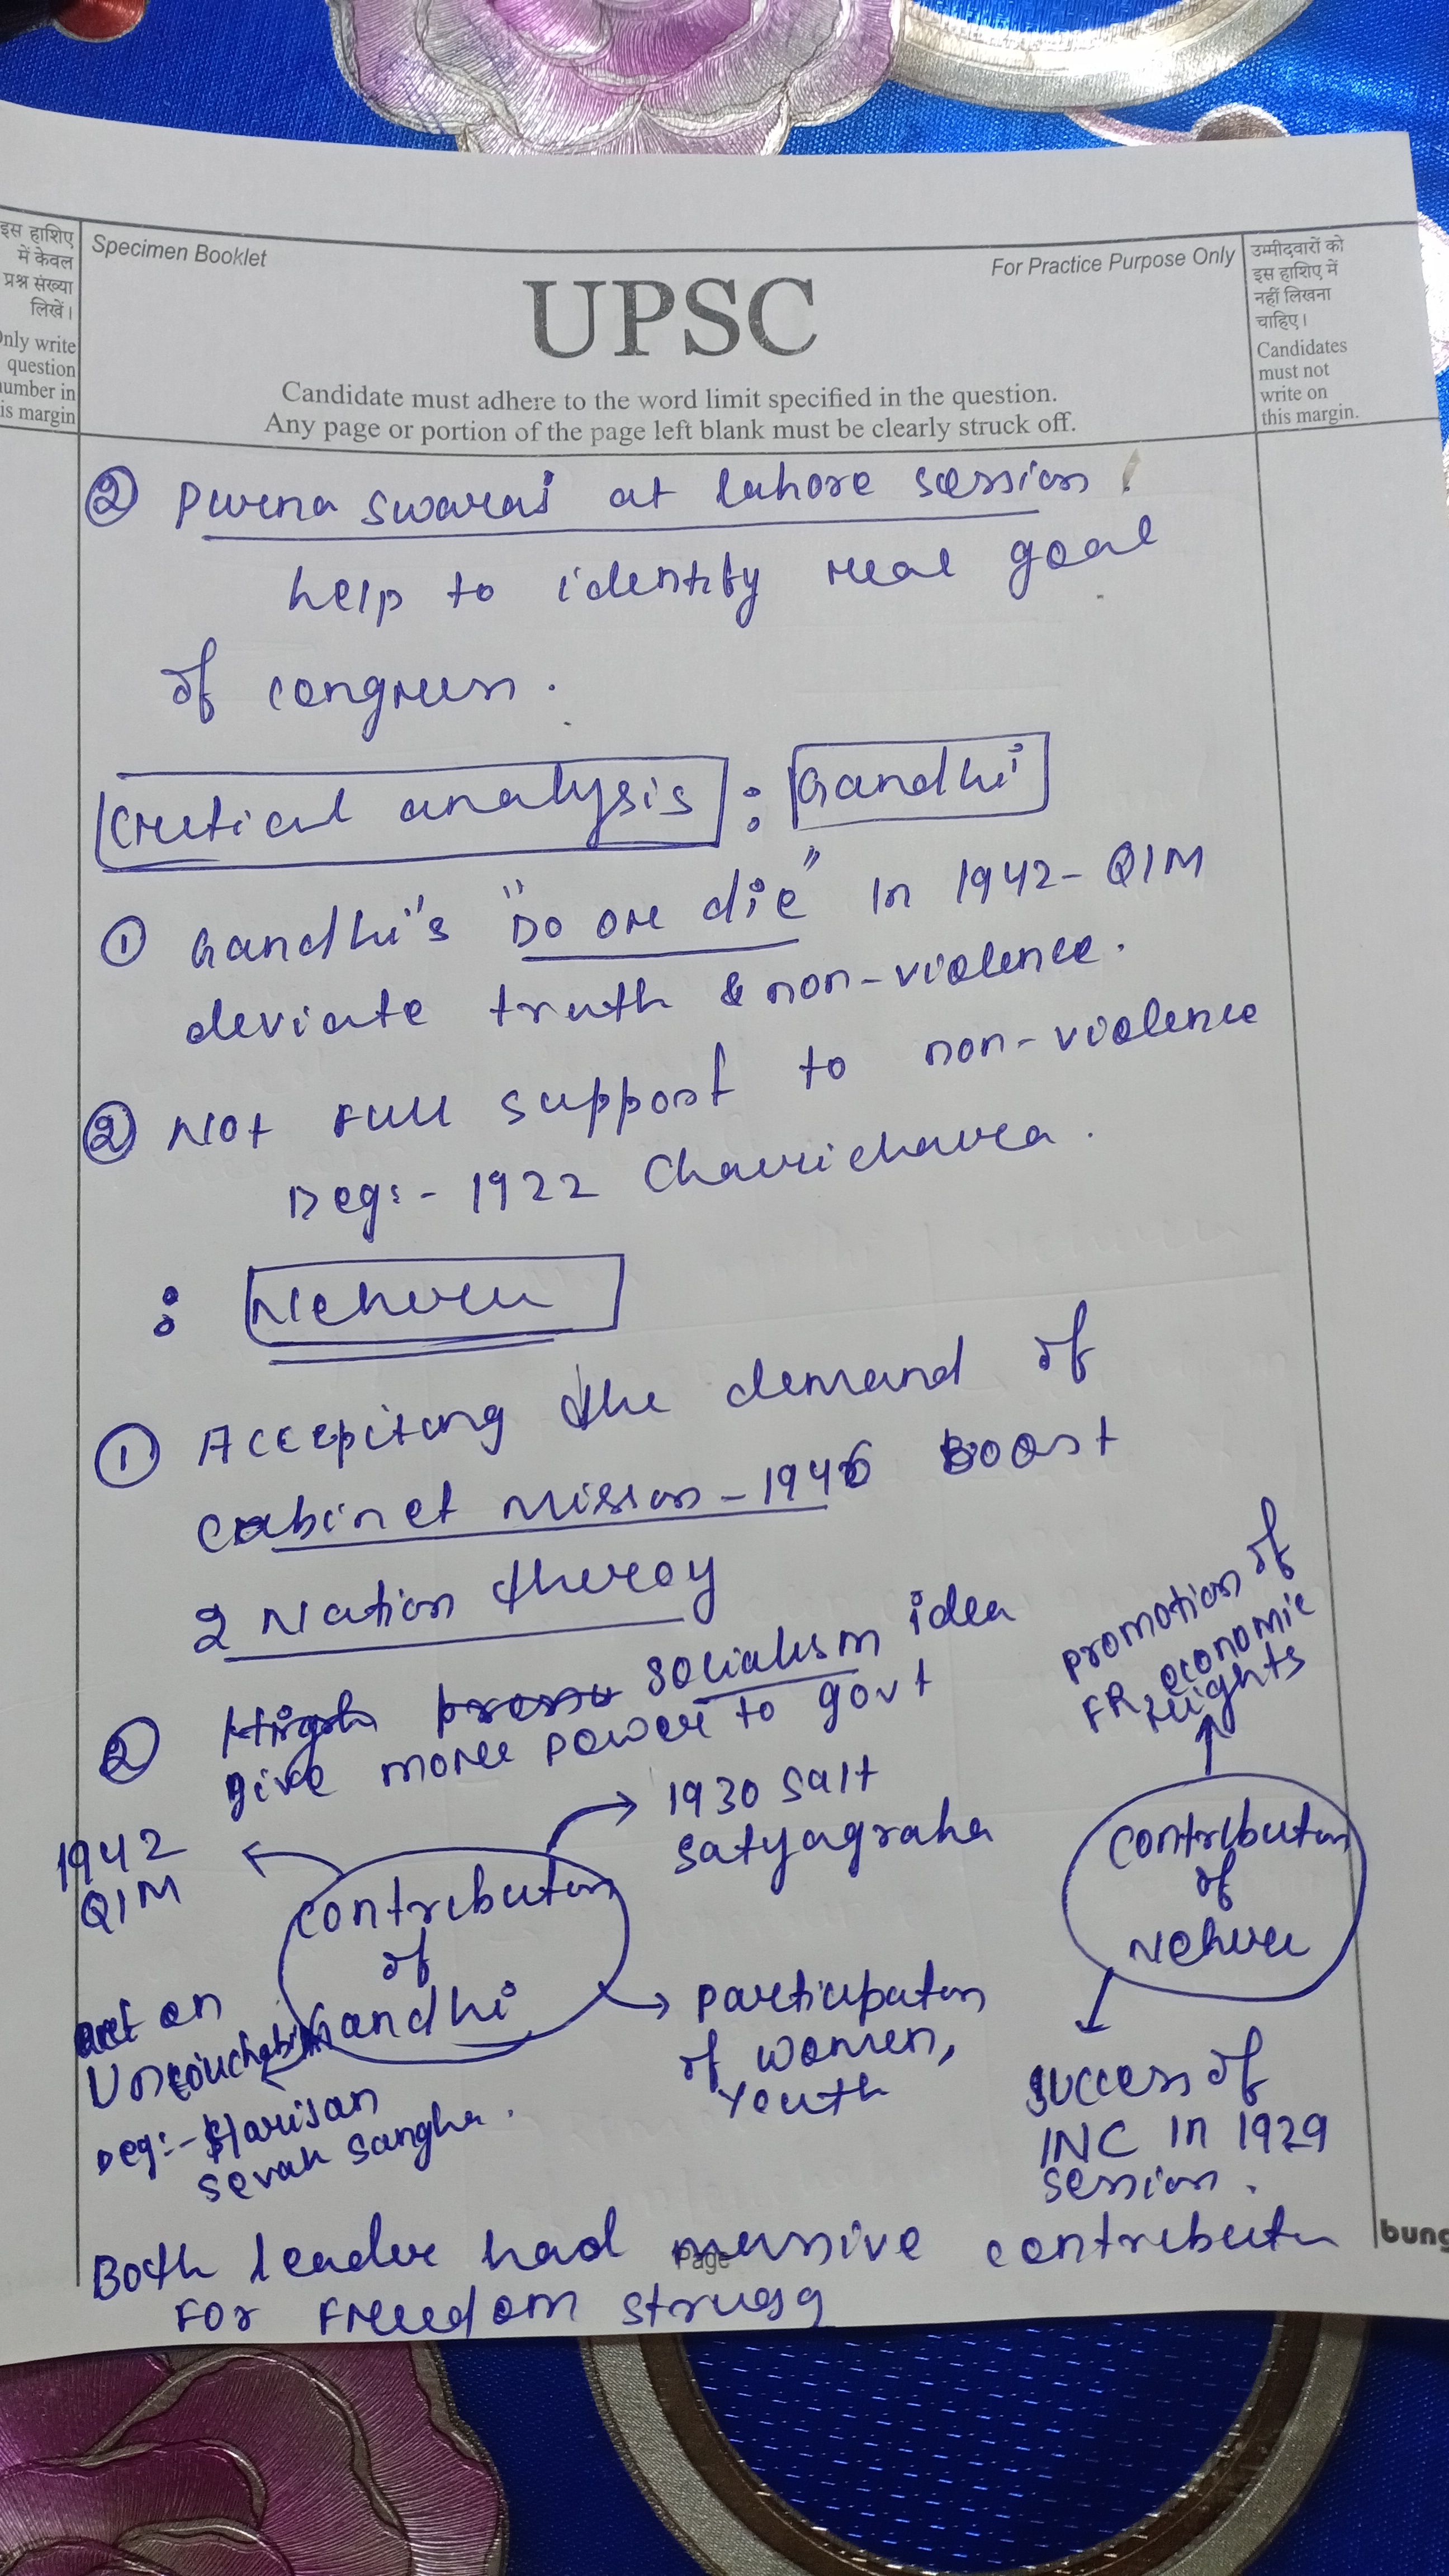 इस हाशिए
में केवल
प्रश्न संख्या
लिखें।
Only write
question
number in
is margin
Specimen Booklet
UPSC
For Practice Purpose Only
Candidate must adhere to the word limit specified in the question.
Any page or portion of the page left blank must be clearly struck off.
उम्मीदवारों को
इस हाशिए में
नहीं लिखना
चाहिए।
Candidates
must not
write on
this margin.
② Purna swaraj at lahore session:
help to identify real goal
of congress.
Critical analysis : Gandhi
① Gandhi's "Do or die" in 1942- QIM
deviate truth & non-violence.
② Not Full support to non-violence
Deg:- 1922 Chaurichaura.
: Nehru
① Accepiting the demand of
cabinet mission - 1946 Boost
2 Nation theroy
② High socialism idea
give more power to govt
promotion of
FR, economic
rights
1942
QIM
1930 salt
satyagraha
contribution
of
Gandhi
contribution
of
Nehru
act on
Untouchability
Deg:- Harijan
sevak sangha.
participation
of women,
Youth
success of
INC in 1929
session.
Both leader had massive contribution
For Freedom strugg
Page
bung